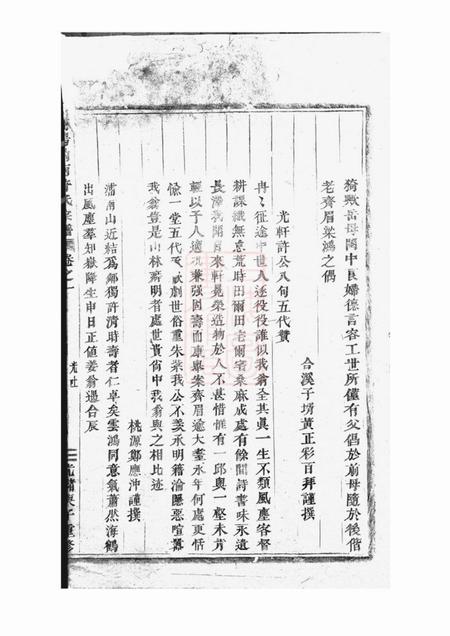 猗歟岳母閫中良婦德言容工世所僅有父倡於前母隨於後偕
老齊眉梁鴻之偶
合溪子壻黃正彩百拜謹撰
光軒許公八旬五代贊
冉冉征途中世人逐役役誰似我翁全其眞一生不類風塵客督
耕課織無意荒時田爾田宅爾宅桑麻成處有餘閒詩書味永遺
長澤我聞自來軒冕榮造物於人不甚惜惟有一邱與一壑未肯
輕以予人適况兼强固壽而康舉案齊眉逾大耋永年何處更恬
愉一堂五代 戲劇世俗重朱紫我公不羨承明籍淪隱惡喧囂
我翁豈是山林癖明者處世貴尚中我翁與之相比迹
桃源鄭應沖謹撰
潘南山近結爲鄰獨許清時壽者仁卓矣雲鴻同意氣蕭然海鶴
出風塵摹知嶽降生申日正値姜翁遇合辰
氏宗譜 卷之一